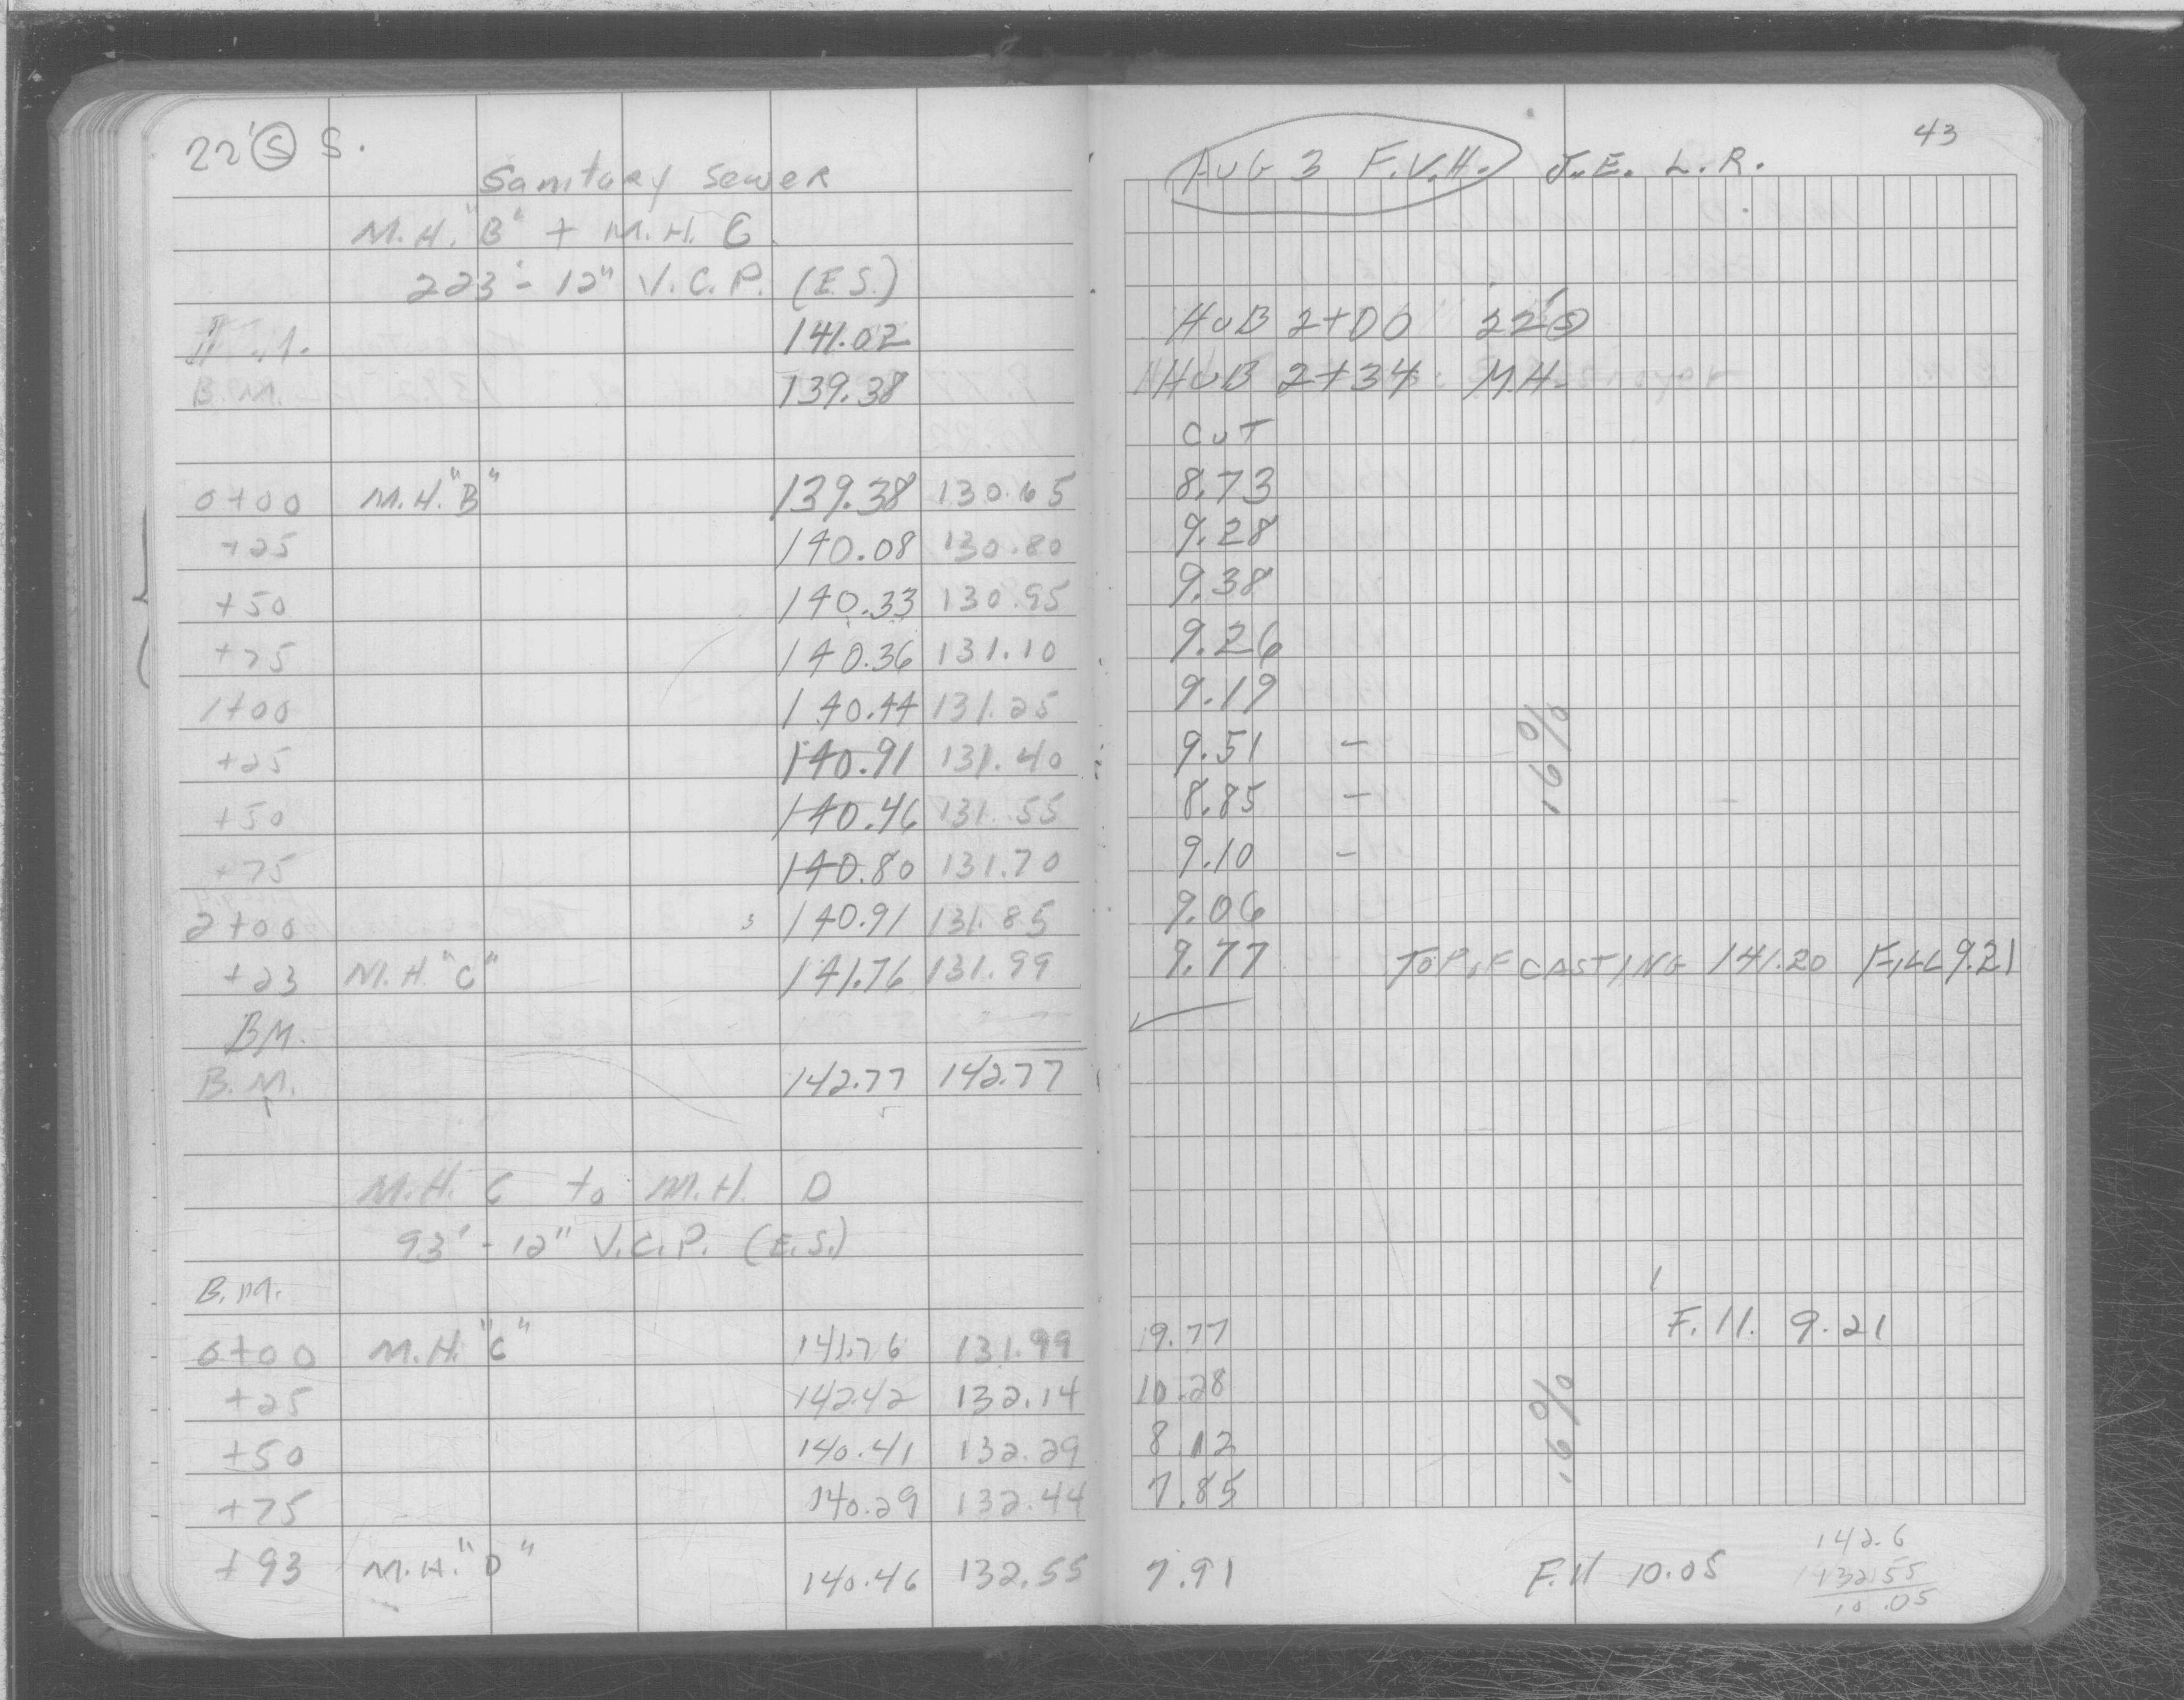 22' Ⓢ S.
Sanitary Sewer
M.H. "B" + M.H. C
223' - 12" V.C.P. (E.S.)
141.02
B.M. 139.38
0+00 M.H. "B" 139.38 130.65
+25 140.08 130.80
+50 140.33 130.95
+75 140.36 131.10
1+00 140.44 131.25
+25 140.91 131.40
+50 140.46 131.55
+75 140.80 131.70
2+00 140.91 131.85
+23 M.H. "C" 141.76 131.99
BM.
B.M. 142.77 142.77
M.H. C to M.H. D
93' - 12" V.C.P. (E.S.)
B.M.
0+00 M.H. "C" 141.76 131.99
+25 142.42 132.14
+50 140.41 132.29
+75 140.29 132.44
+93 M.H. "D" 140.46 132.55
43
AUG 3 F.V.H. J.E. L.R.
HUB 2+00 22' Ⓢ
HUB 2+34 M.H.
CUT
8.73
9.28
9.38
9.26
9.19
9.51 -
8.85 -
9.10 -
.16%
9.06
9.77 TOP OF CASTING 141.20 FILL 9.21
9.77 Fill 9.21
10.28
8.12
7.85
.16%
7.91 Fill 10.05
142.6
132.55
10.05